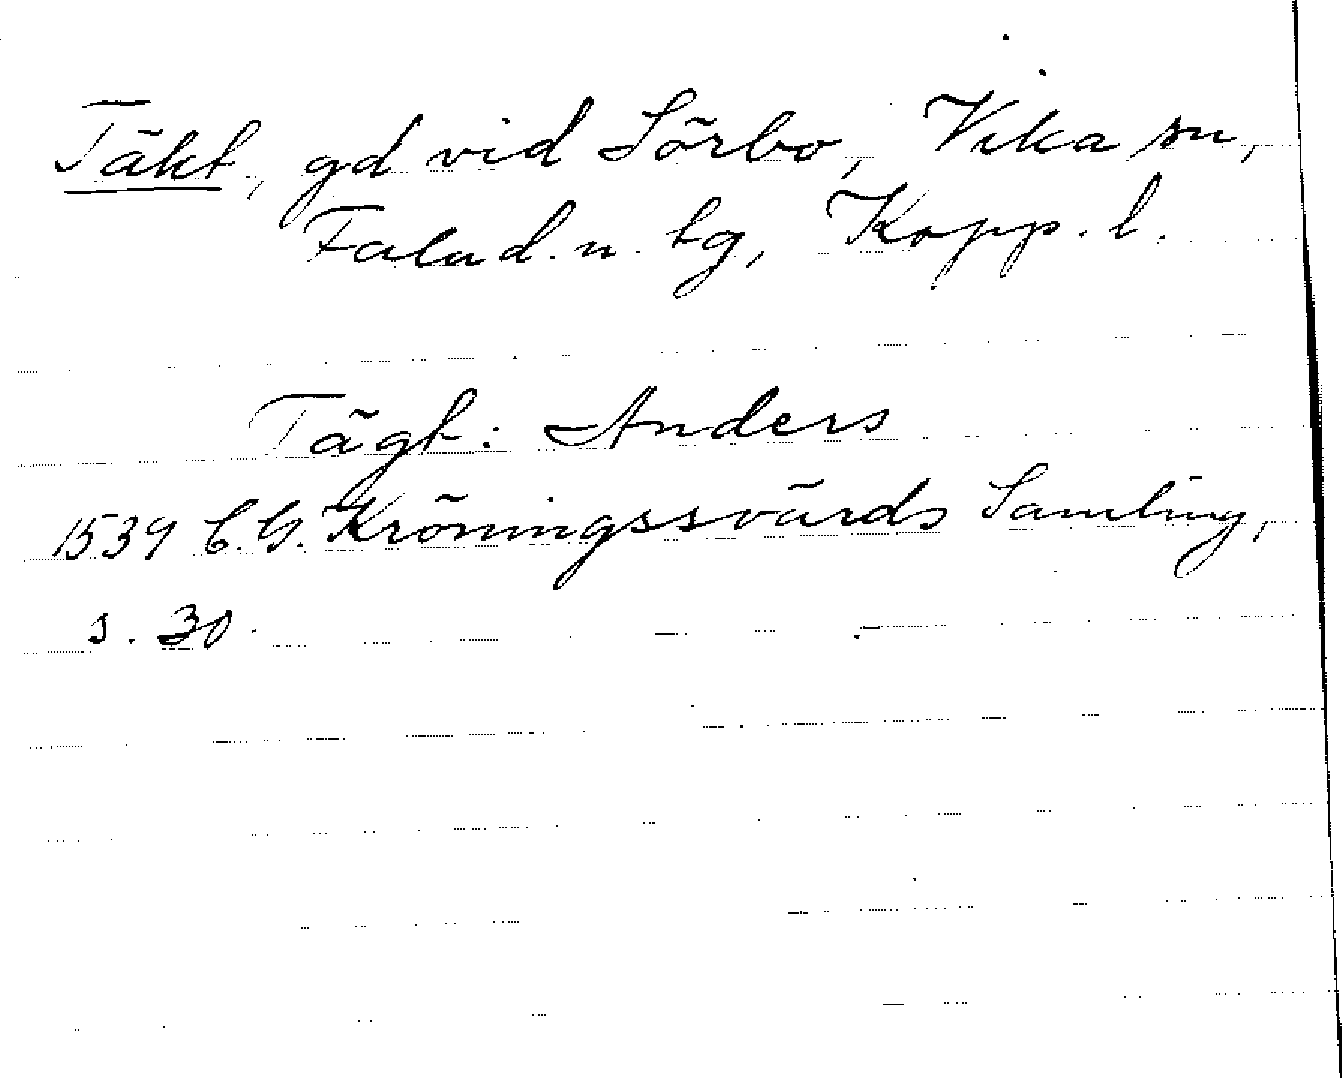 Täkt, gd vid Sörbo, Vika sn,
Falu d.s. tg, Kopp. l.
Tägt: Anders
1539 C.G. Kröningssvärds Samling,
s. 30.